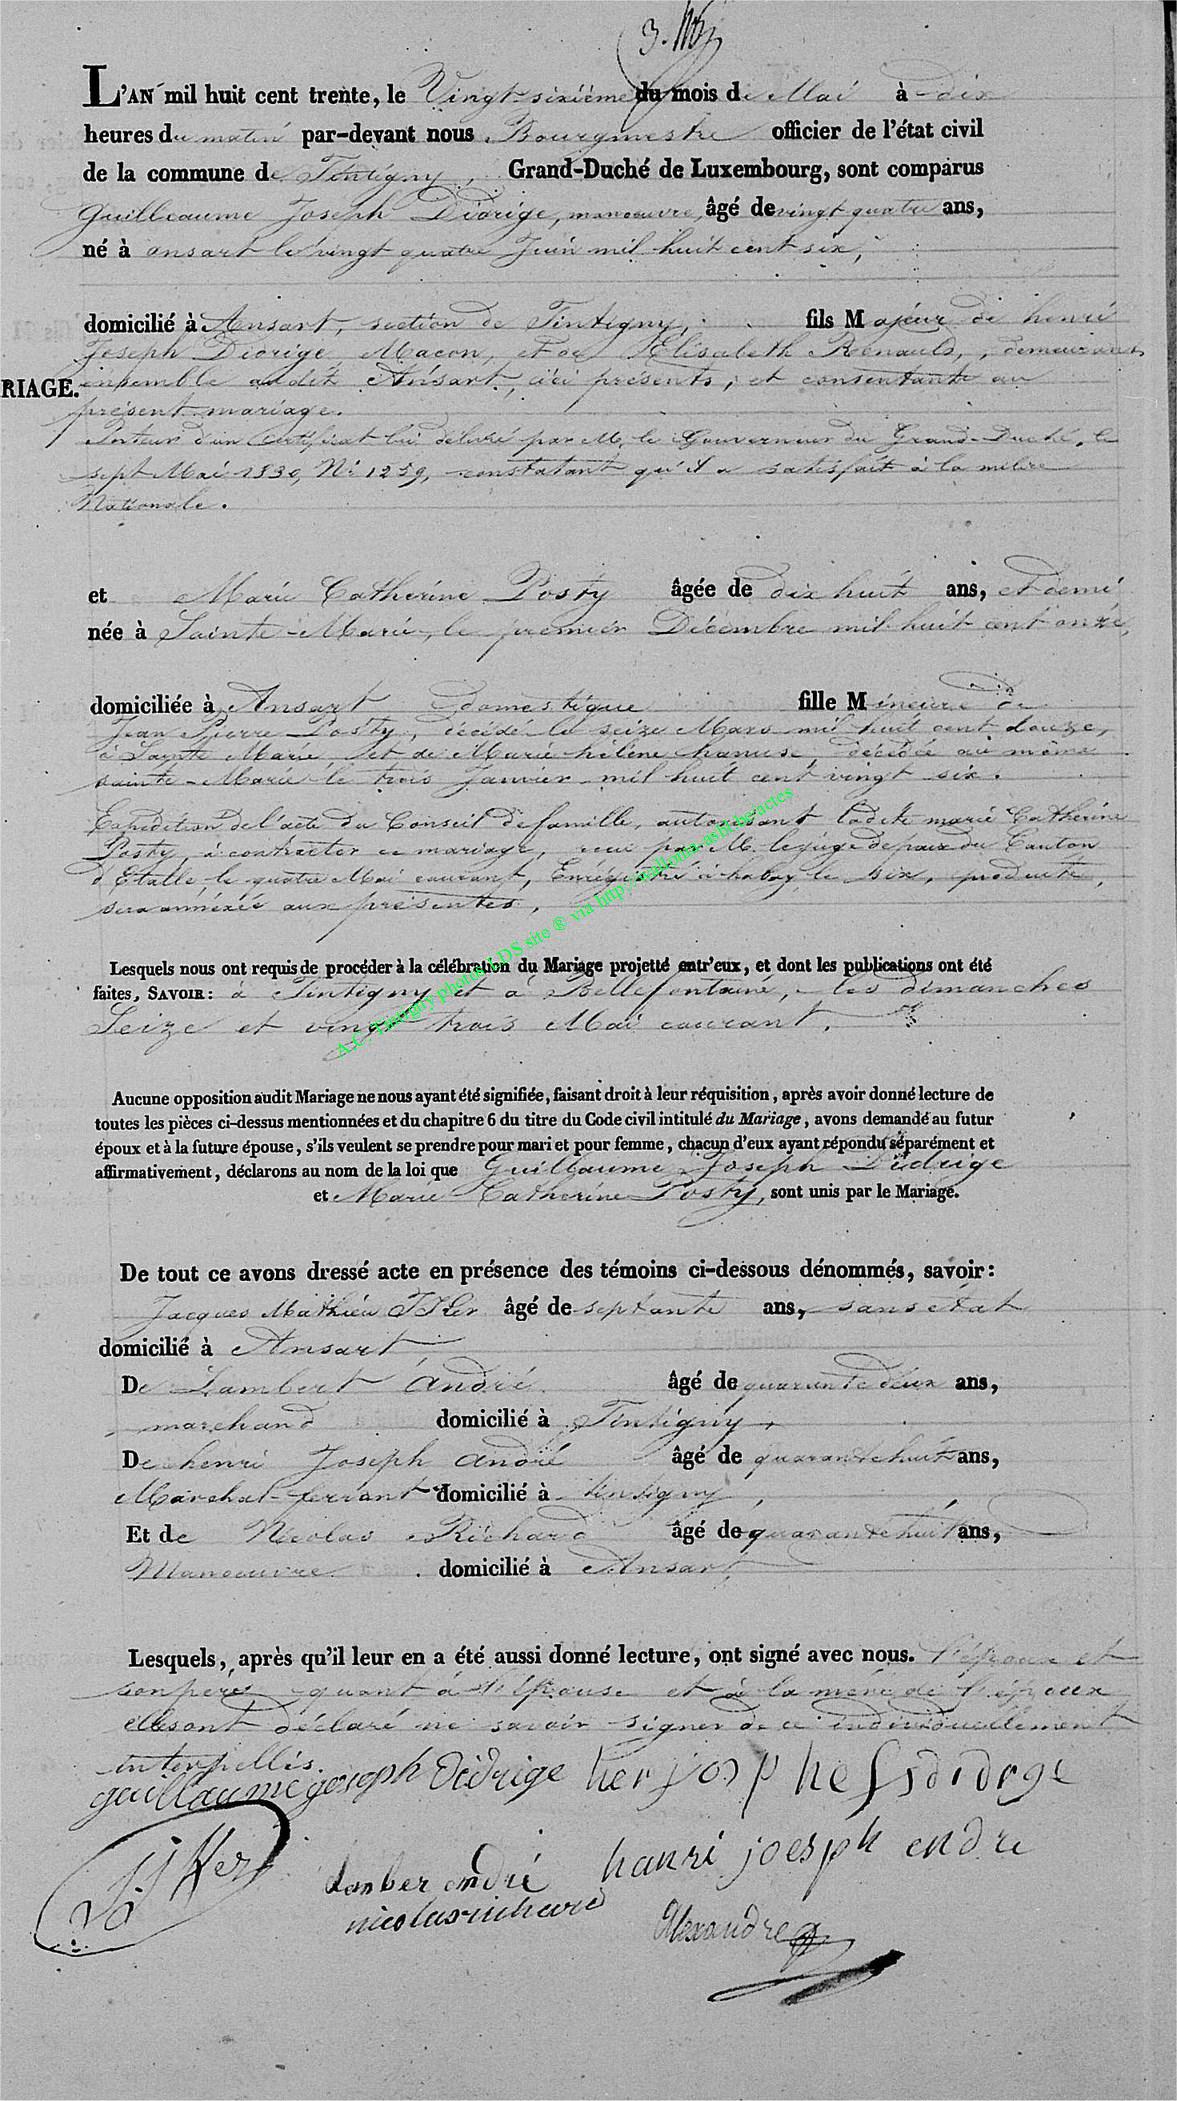 3.
L'AN mil huit cent trente, le Vingt-sixième du mois de Mai à dix
heures du matin par-devant nous Bourgmestre officier de l'état civil
de la commune de Tintigny, Grand-Duché de Luxembourg, sont comparus
Guilleaume Joseph Didrige, manoeuvre, âgé de vingt quatre ans,
né à ansart le vingt quatre Juin mil huit cent six,
domicilié à Ansart, section de Tintigny, fils Majeur de henri
Joseph Didrige, Macon, et de Elisabeth Renauld, demeurant
RIAGE.
ensemble audit Ansart, ici présents, et consentants au
présent mariage.
Porteur d'un Certificat lui délivré par M. le Gouverneur du Grand-Duché, le
sept Mai 1830, No 1259, constatant qu'il a satisfait à la milice
Nationale.
et Marie Catherine Posty âgée de dix huit ans, et demi
née à Sainte-Marie, le premier Décembre mil huit cent onze,
domiciliée à Ansart domestique fille Mineure de
Jean Pierre Posty, décédé le seize Mars mil huit cent douze,
à Sainte Marie, et de Marie-hélène hanus, décédée au même
sainte-Marie le trois Janvier mil huit cent vingt six.
Expédition de l'acte du Conseil de famille, autorisant ladite marie Catherine
Posty, à contracter ce mariage, reçu par M. le juge de paix du Canton
d'Etalle, le quatre Mai courant, Enrégistré à habay le six, produite,
sera annéxée aux présentes.
Lesquels nous ont requis de procéder à la célébration du Mariage projetté entr'eux, et dont les publications ont été
faites, SAVOIR: à Tintigny et à Bellefontaine, les dimanches
Seize et vingt trois Mai courant.
A.C. Tintigny photos LDS site ® via http://wallonia-asbl.be/actes
Aucune opposition audit Mariage ne nous ayant été signifiée, faisant droit à leur réquisition, après avoir donné lecture de
toutes les pièces ci-dessus mentionnées et du chapitre 6 du titre du Code civil intitulé du Mariage, avons demandé au futur
époux et à la future épouse, s'ils veulent se prendre pour mari et pour femme, chacun d'eux ayant répondu séparément et
affirmativement, déclarons au nom de la loi que Guillaume Joseph Didrige
et Marie Catherine Posty, sont unis par le Mariage.
De tout ce avons dressé acte en présence des témoins ci-dessous dénommés, savoir:
Jacques Mathieu âgé de septante ans, sans état
domicilié à Ansart
De Lambert André âgé de quarante deux ans,
marchand domicilié à Tintigny,
De henri Joseph André âgé de quarante huit ans,
Maréchal-ferrant domicilié à tintigny,
Et de Nicolas Richard âgé de quarante huit ans,
Manoeuvre domicilié à Ansart,
Lesquels, après qu'il leur en a été aussi donné lecture, ont signé avec nous. l'époux et
son père, quant à l'épouse et à la mère de l'époux
elles ont déclaré ne savoir signer de ce individuellement
interpellés.
guillaume joseph didrige
lanber andré
hanri joesph endre
nicolas richard
Alexandre